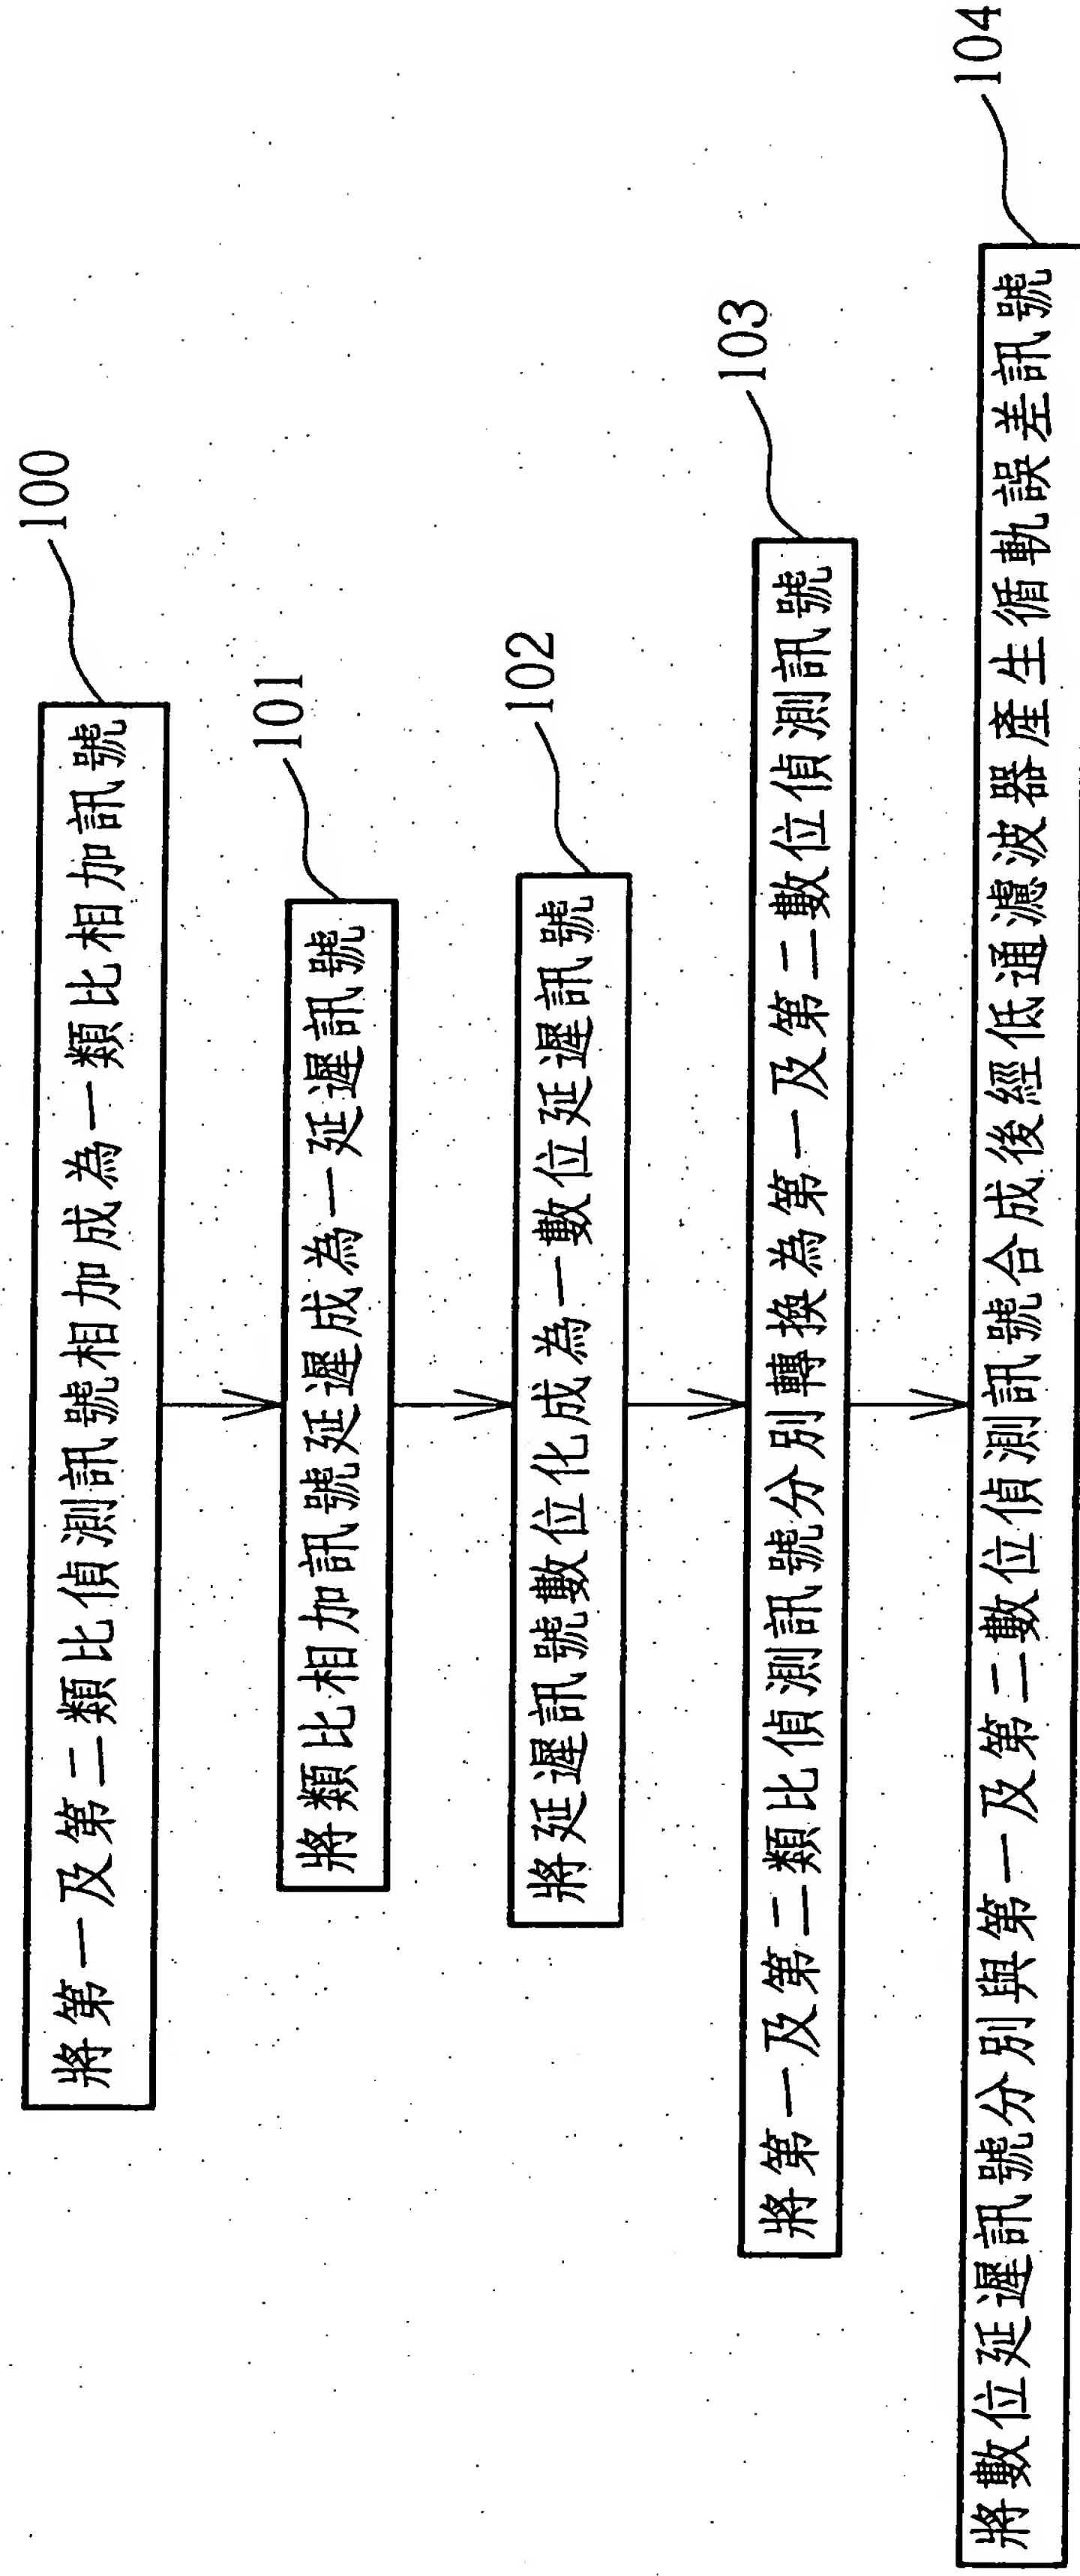 100
將第一及第二類比偵測訊號相加成為一類比相加訊號
101
將類比相加訊號延遲成為一延遲訊號
102
將延遲訊號數位化成為一數位延遲訊號
103
將第一及第二類比偵測訊號分別轉換為第一及第二數位偵測訊號
104
將數位延遲訊號分別與第一及第二數位偵測訊號合成後經低通濾波器產生循軌誤差訊號